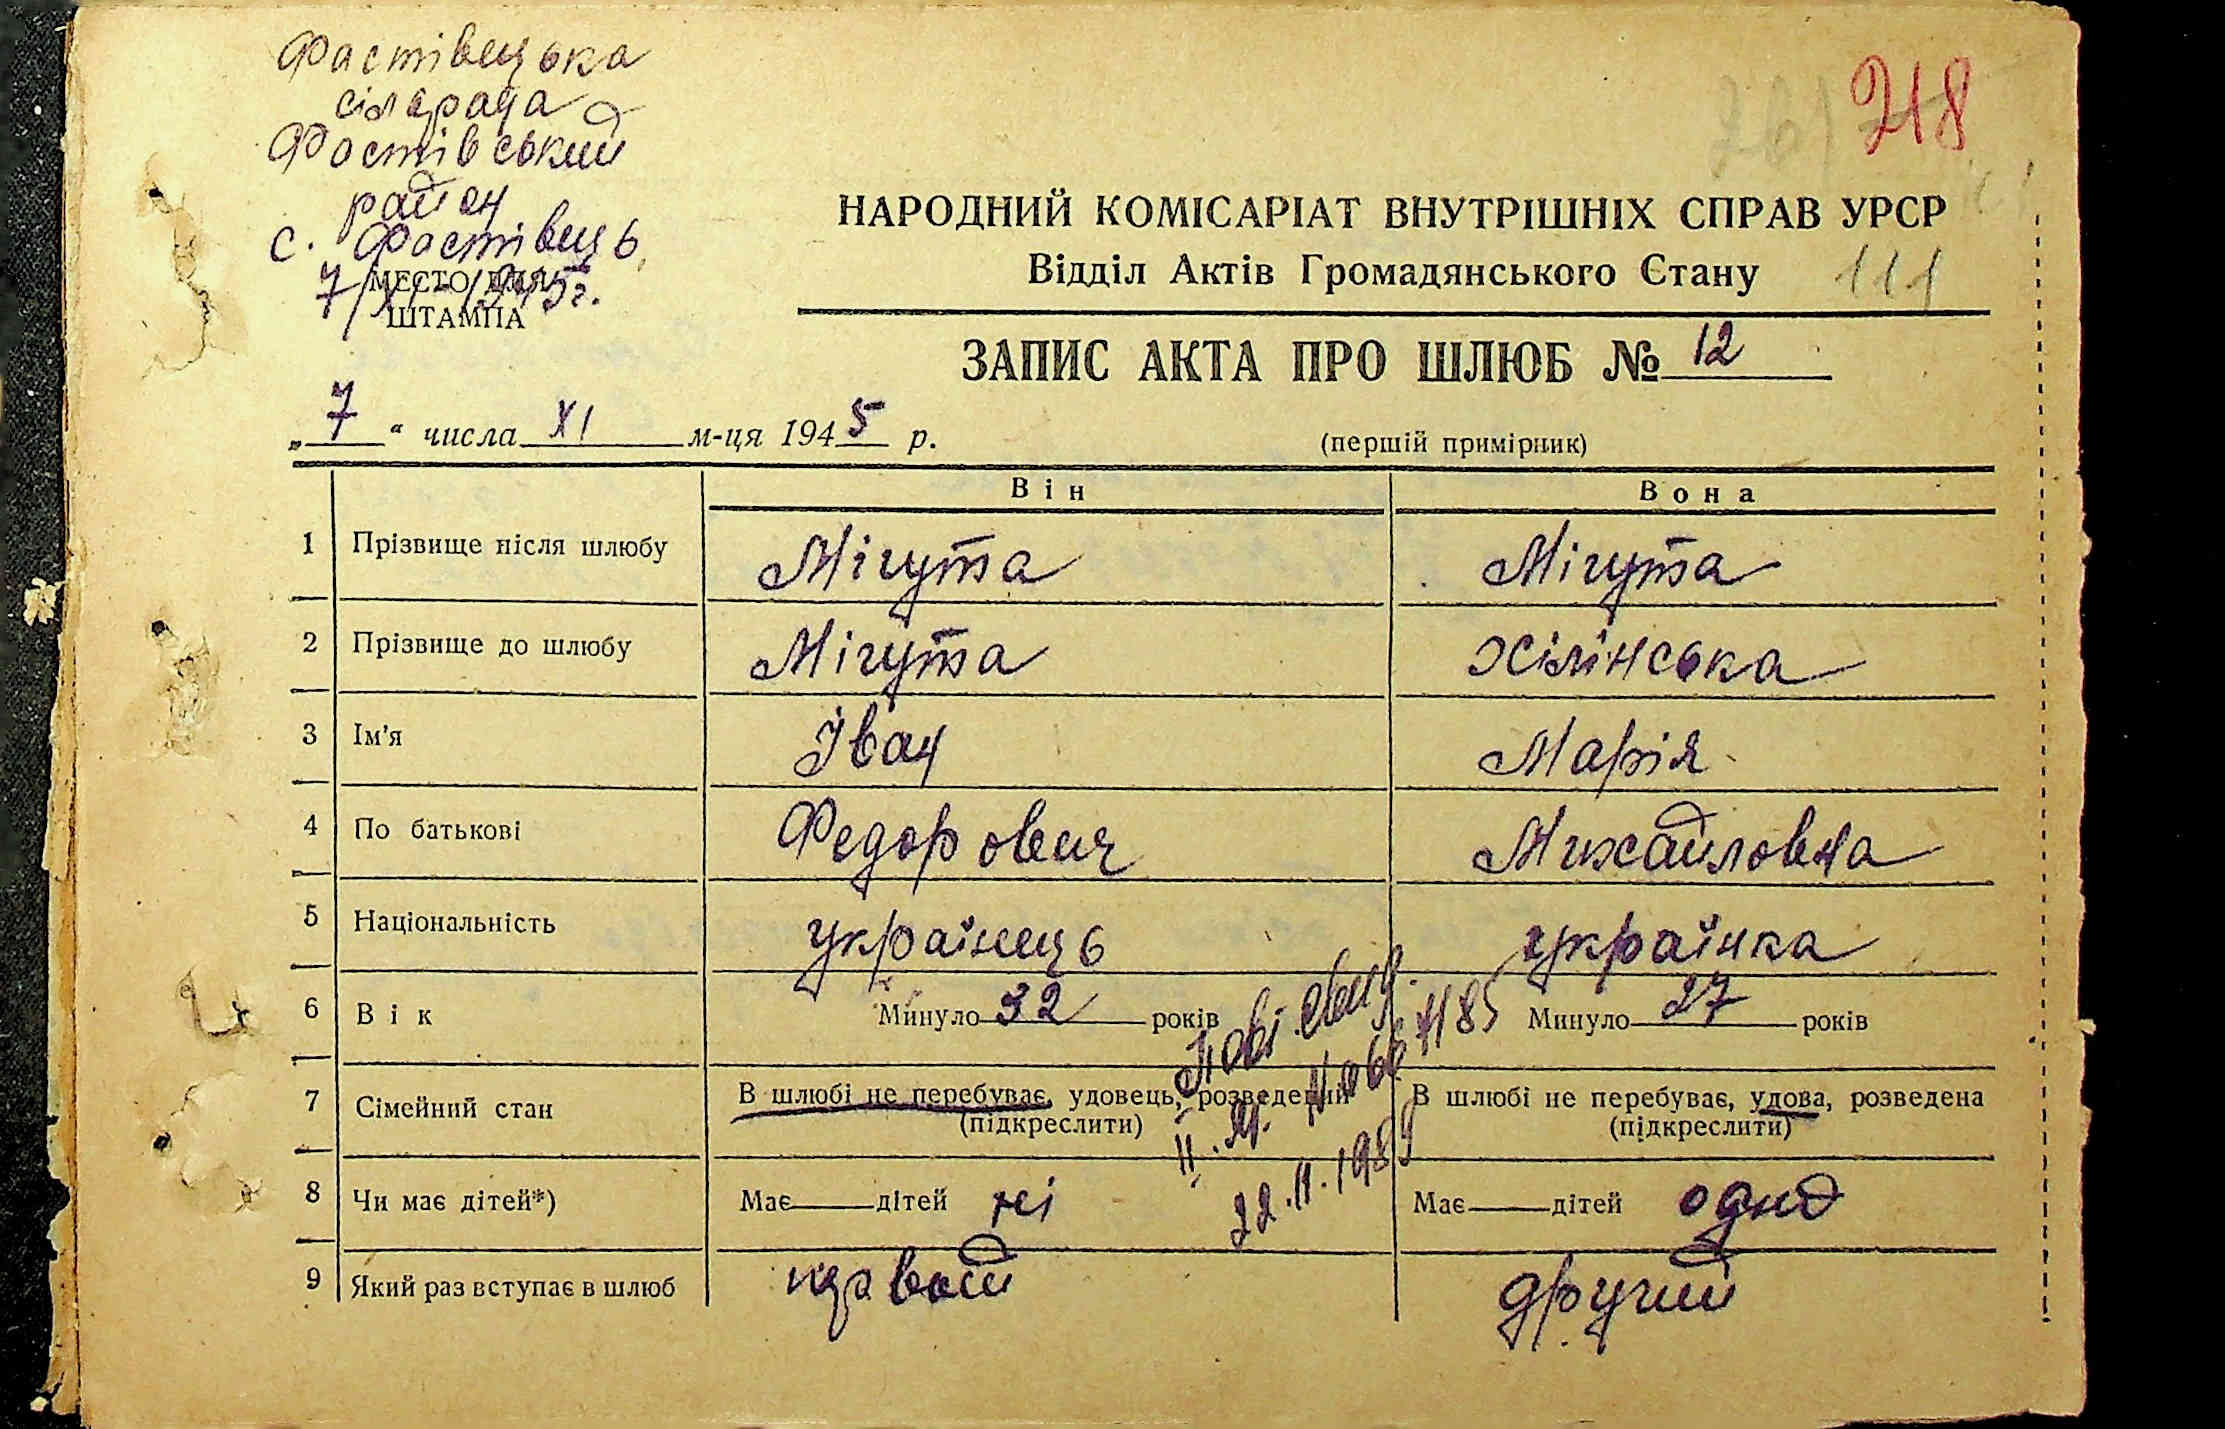 Фастівецька
сільрада
Фастівський
район
с. Фастівець
7/XI-1945г.
МЕСТО ДЛЯ
ШТАМПА
218
НАРОДНИЙ КОМІСАРІАТ ВНУТРІШНІХ СПРАВ УРСР
Відділ Актів Громадянського Стану
111
ЗАПИС АКТА ПРО ШЛЮБ № 12
„ 7 “ числа XI м-ця 1945 р.
(першій примірник)
Він Вона
1 Прізвище після шлюбу Мігута Мігута
2 Прізвище до шлюбу Мігута Хілінська
3 Ім'я Іван Марія
4 По батькові Федорович Михайловна
5 Національність українець українка
6 Вік Минуло 32 років Минуло 27 років
7 Сімейний стан В шлюбі не перебуває, удовець, розведений В шлюбі не перебуває, удова, розведена
(підкреслити) (підкреслити)
8 Чи має дітей*) Має дітей ні Має дітей одно
9 Який раз вступає в шлюб первый другий
22.11.1984